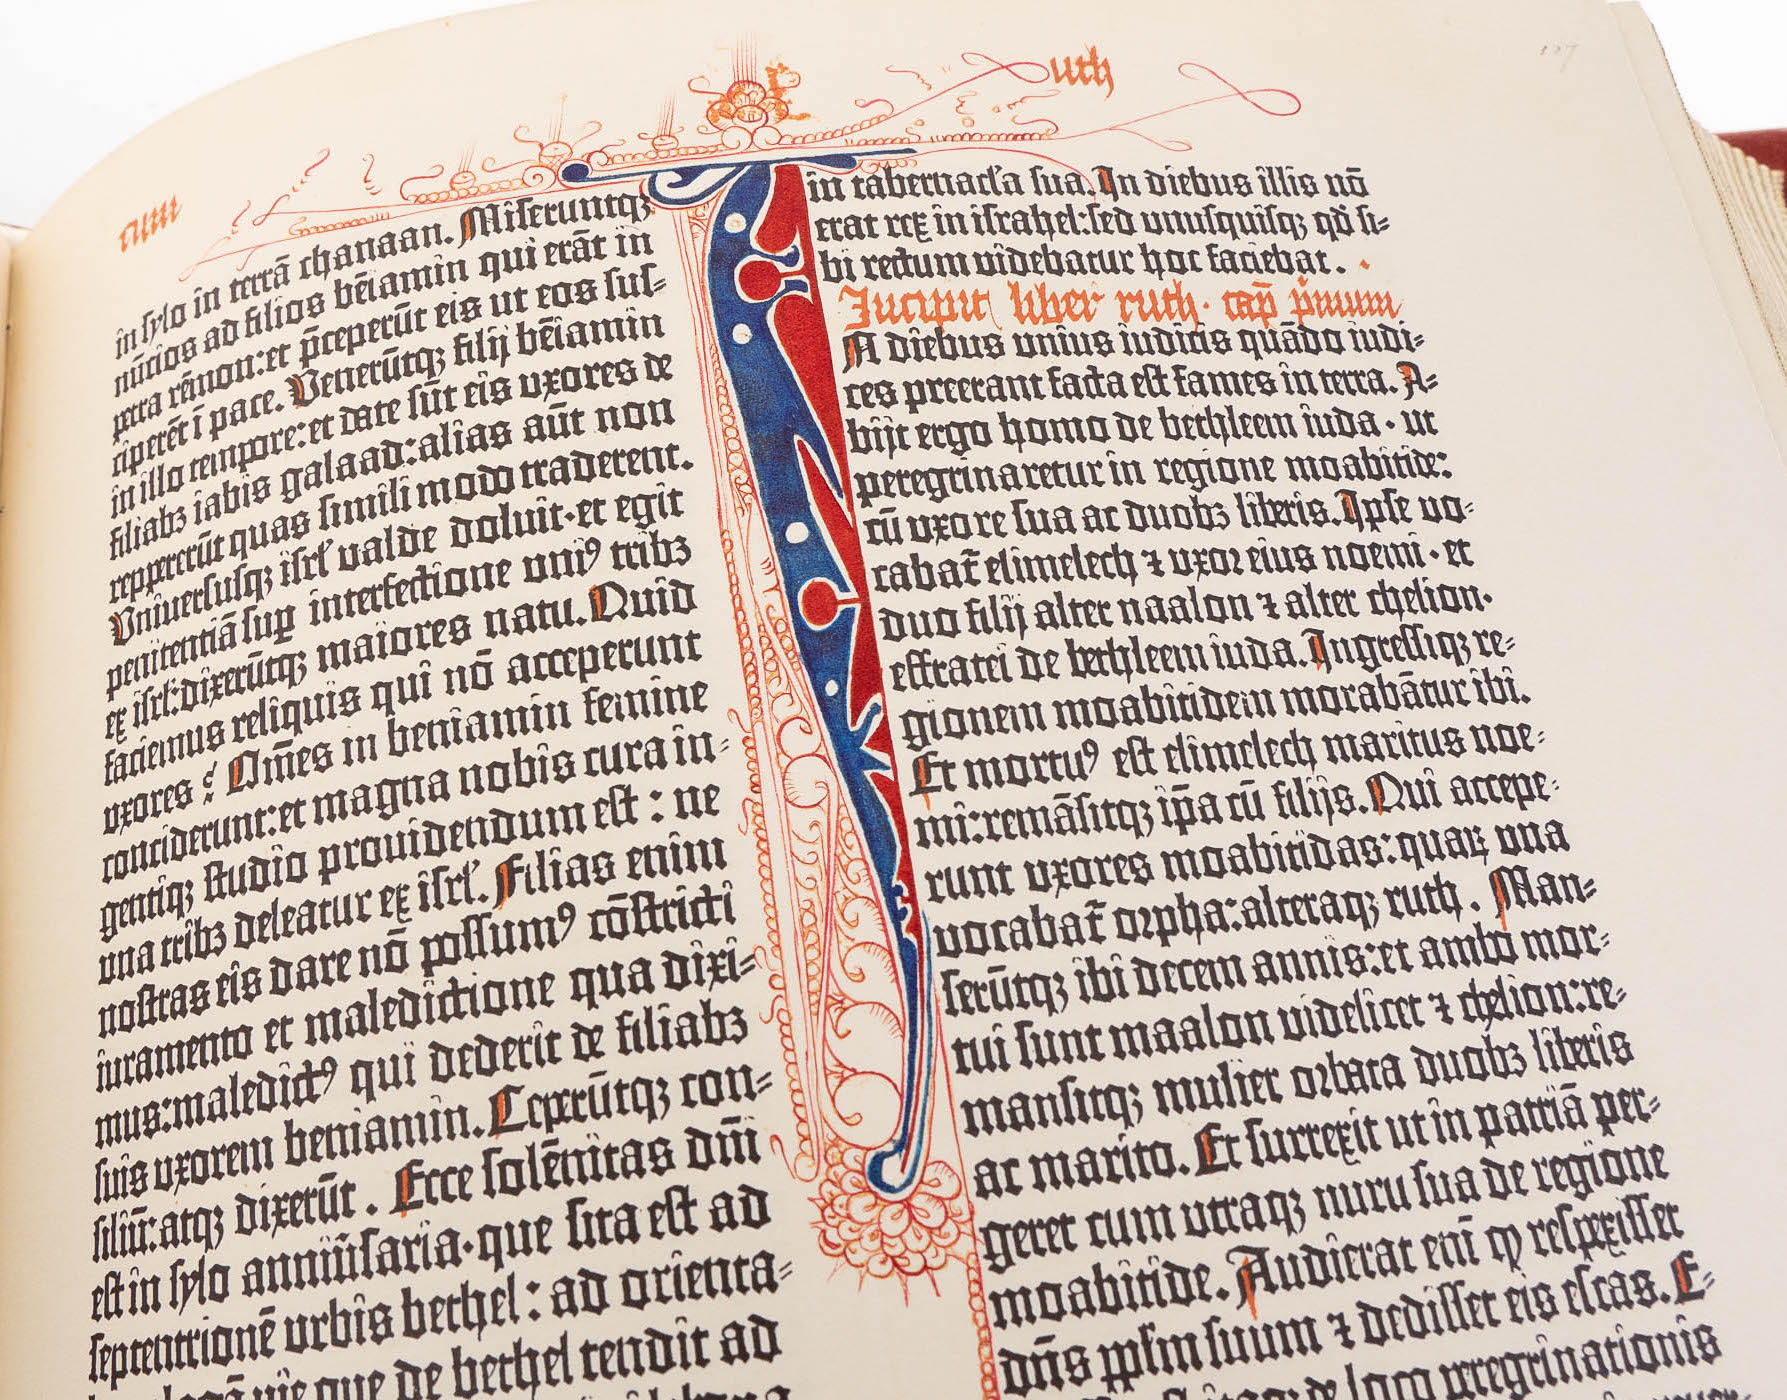 uth
in sylo in terrā chanaan. Miseruntqꝫ
nūcios ad filios bēiamin qui erāt in
petra rēmon: et p̄ceperūt eis ut eos sus⸗
ciperēt ī pace. Venerūtqꝫ filij bēiamin
in illo tempore: et date sūt eis uxores de
filiabꝫ iabis galaad: alias aūt non
reppererūt quas simili modo traderent.
Vniuersusqꝫ isrl̓ valde doluit·et egit
penitentiā suꝑ interfectione uniꝰ tribꝫ
ex isrl̓: dixerūtqꝫ maiores natu. Quid
faciemus reliquis qui nō acceperunt
uxores? Om̄es in beniamin femine
conciderunt: et magna nobis cura in⸗
gentiqꝫ studio prouidendum est : ne
una tribꝫ deleatur ex isrl̓. Filias enim
nostras eis dare nō possumꝰ cōstricti
iuramento et maledictione qua dixi⸗
mus: maledictꝰ qui dederit de filiabꝫ
suis uxorem beniamin. Ceperūtqꝫ con⸗
siliū: atqꝫ dixerūt. Ecce solēnitas dn̄i
est in sylo anniūsaria·que sita est ad
septentrionē urbis bethel : ad orienta⸗
vie que de bethel tendit ad
in tabernacl̓a sua. In diebus illis nō
erat rex in israhel: sed unusquisqꝫ qd̓ si⸗
bi rectum videbatur hoc faciebat.
Incipit liber ruth. cap̄ p̄mum
N diebus unius iudicis quādo iudi⸗
ces preerant facta est fames in terra. A⸗
bijt ergo homo de bethleem iuda· ut
peregrinaretur in regione moabitide:
cū uxore sua ac duobꝫ liberis. Ipse vo⸗
cabat̄ elimelech ⁊ uxor eius noemi· et
duo filij alter naalon ⁊ alter chelion·
effratei de bethleem iuda. Ingressiqꝫ re⸗
gionem moabitidem morabātur ibi.
Et mortuꝰ est elimelech maritus noe⸗
mi: remāsitqꝫ ip̄a cū filijs. Qui accepe⸗
runt uxores moabitidas: quaꝝ una
vocabat̄ orpha: alteraqꝫ ruth. Man⸗
serūtqꝫ ibi decem annis: et ambo mor⸗
tui sunt maalon videlicet ⁊ chelion: re⸗
mansitqꝫ mulier orbata duobꝫ liberis
ac marito. Et surrexit ut in patriā per⸗
geret cum utraqꝫ nuru sua de regione
moabitide. Audierat enī ꝙ respexisset
dn̄s pp̄lm suum ⁊ dedisset eis escas. E⸗
de loco peregrinationis